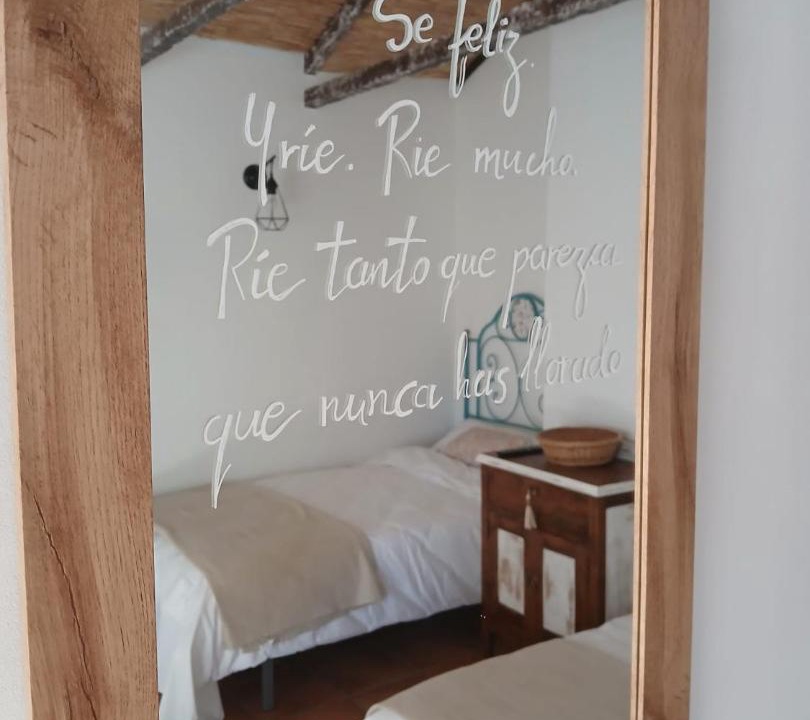 Se feliz.
Y ríe. Rie mucho.
Ríe tanto que parezca
que nunca has llorado